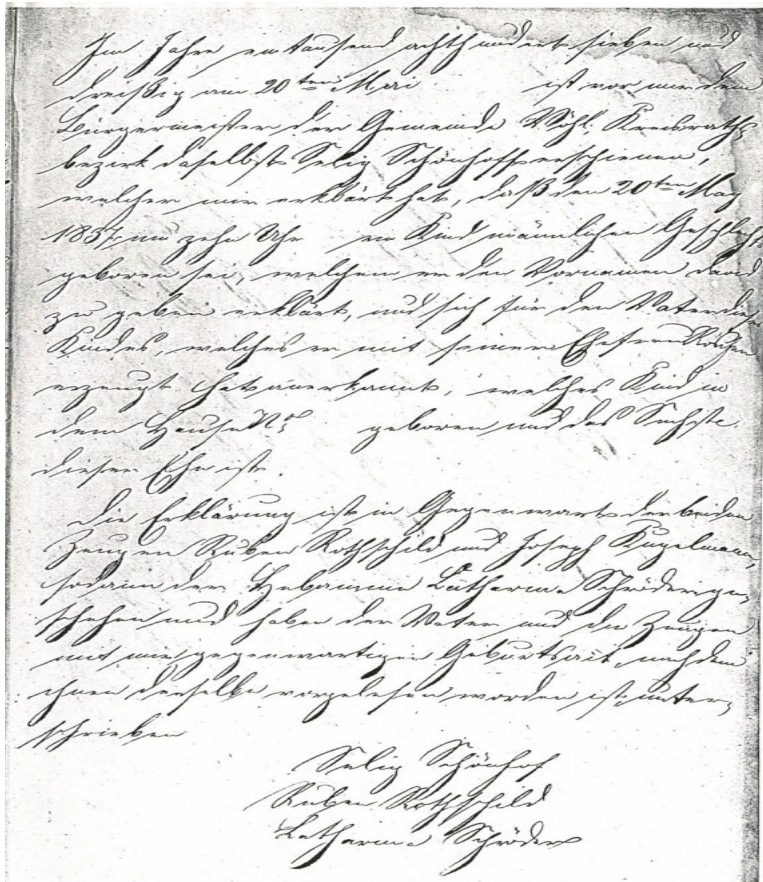 Im Jahre ein tausend achthundert sieben und
dreißig am 20ten Mai ist vor mir dem
Bürgermeister der Gemeinde Vöhl. Kreisraths
bezirk daselbst Selig Schönhoff erschienen,
welcher mir erklärt hat, daß den 20ten May
1837 um zehn Uhr ein Kind männlichen Geschlechts
geboren sei, welchem er den Vornamen David
zu geben erklärt, und sich für den Vater dieses
Kindes, welches er mit seiner Ehefrau
erzeugt hat anerkannt, welches Kind in
dem Hause No geboren und das Sechste
dieser Ehe ist.
Die Erklärung ist in Gegenwart der beiden
Zeugen Ruben Rothschild und Joseph Kugelmann,
sodann der Hebamme Catharina Schröder ge,
schehen und haben der Vater und die Zeugen
mit mir gegenwärtigen Geburtsact, nachdem
ihnen derselbe vorgelesen worden ist, unter,
schrieben
Selig Schönhof
Ruben Rothschild
Catharina Schröder